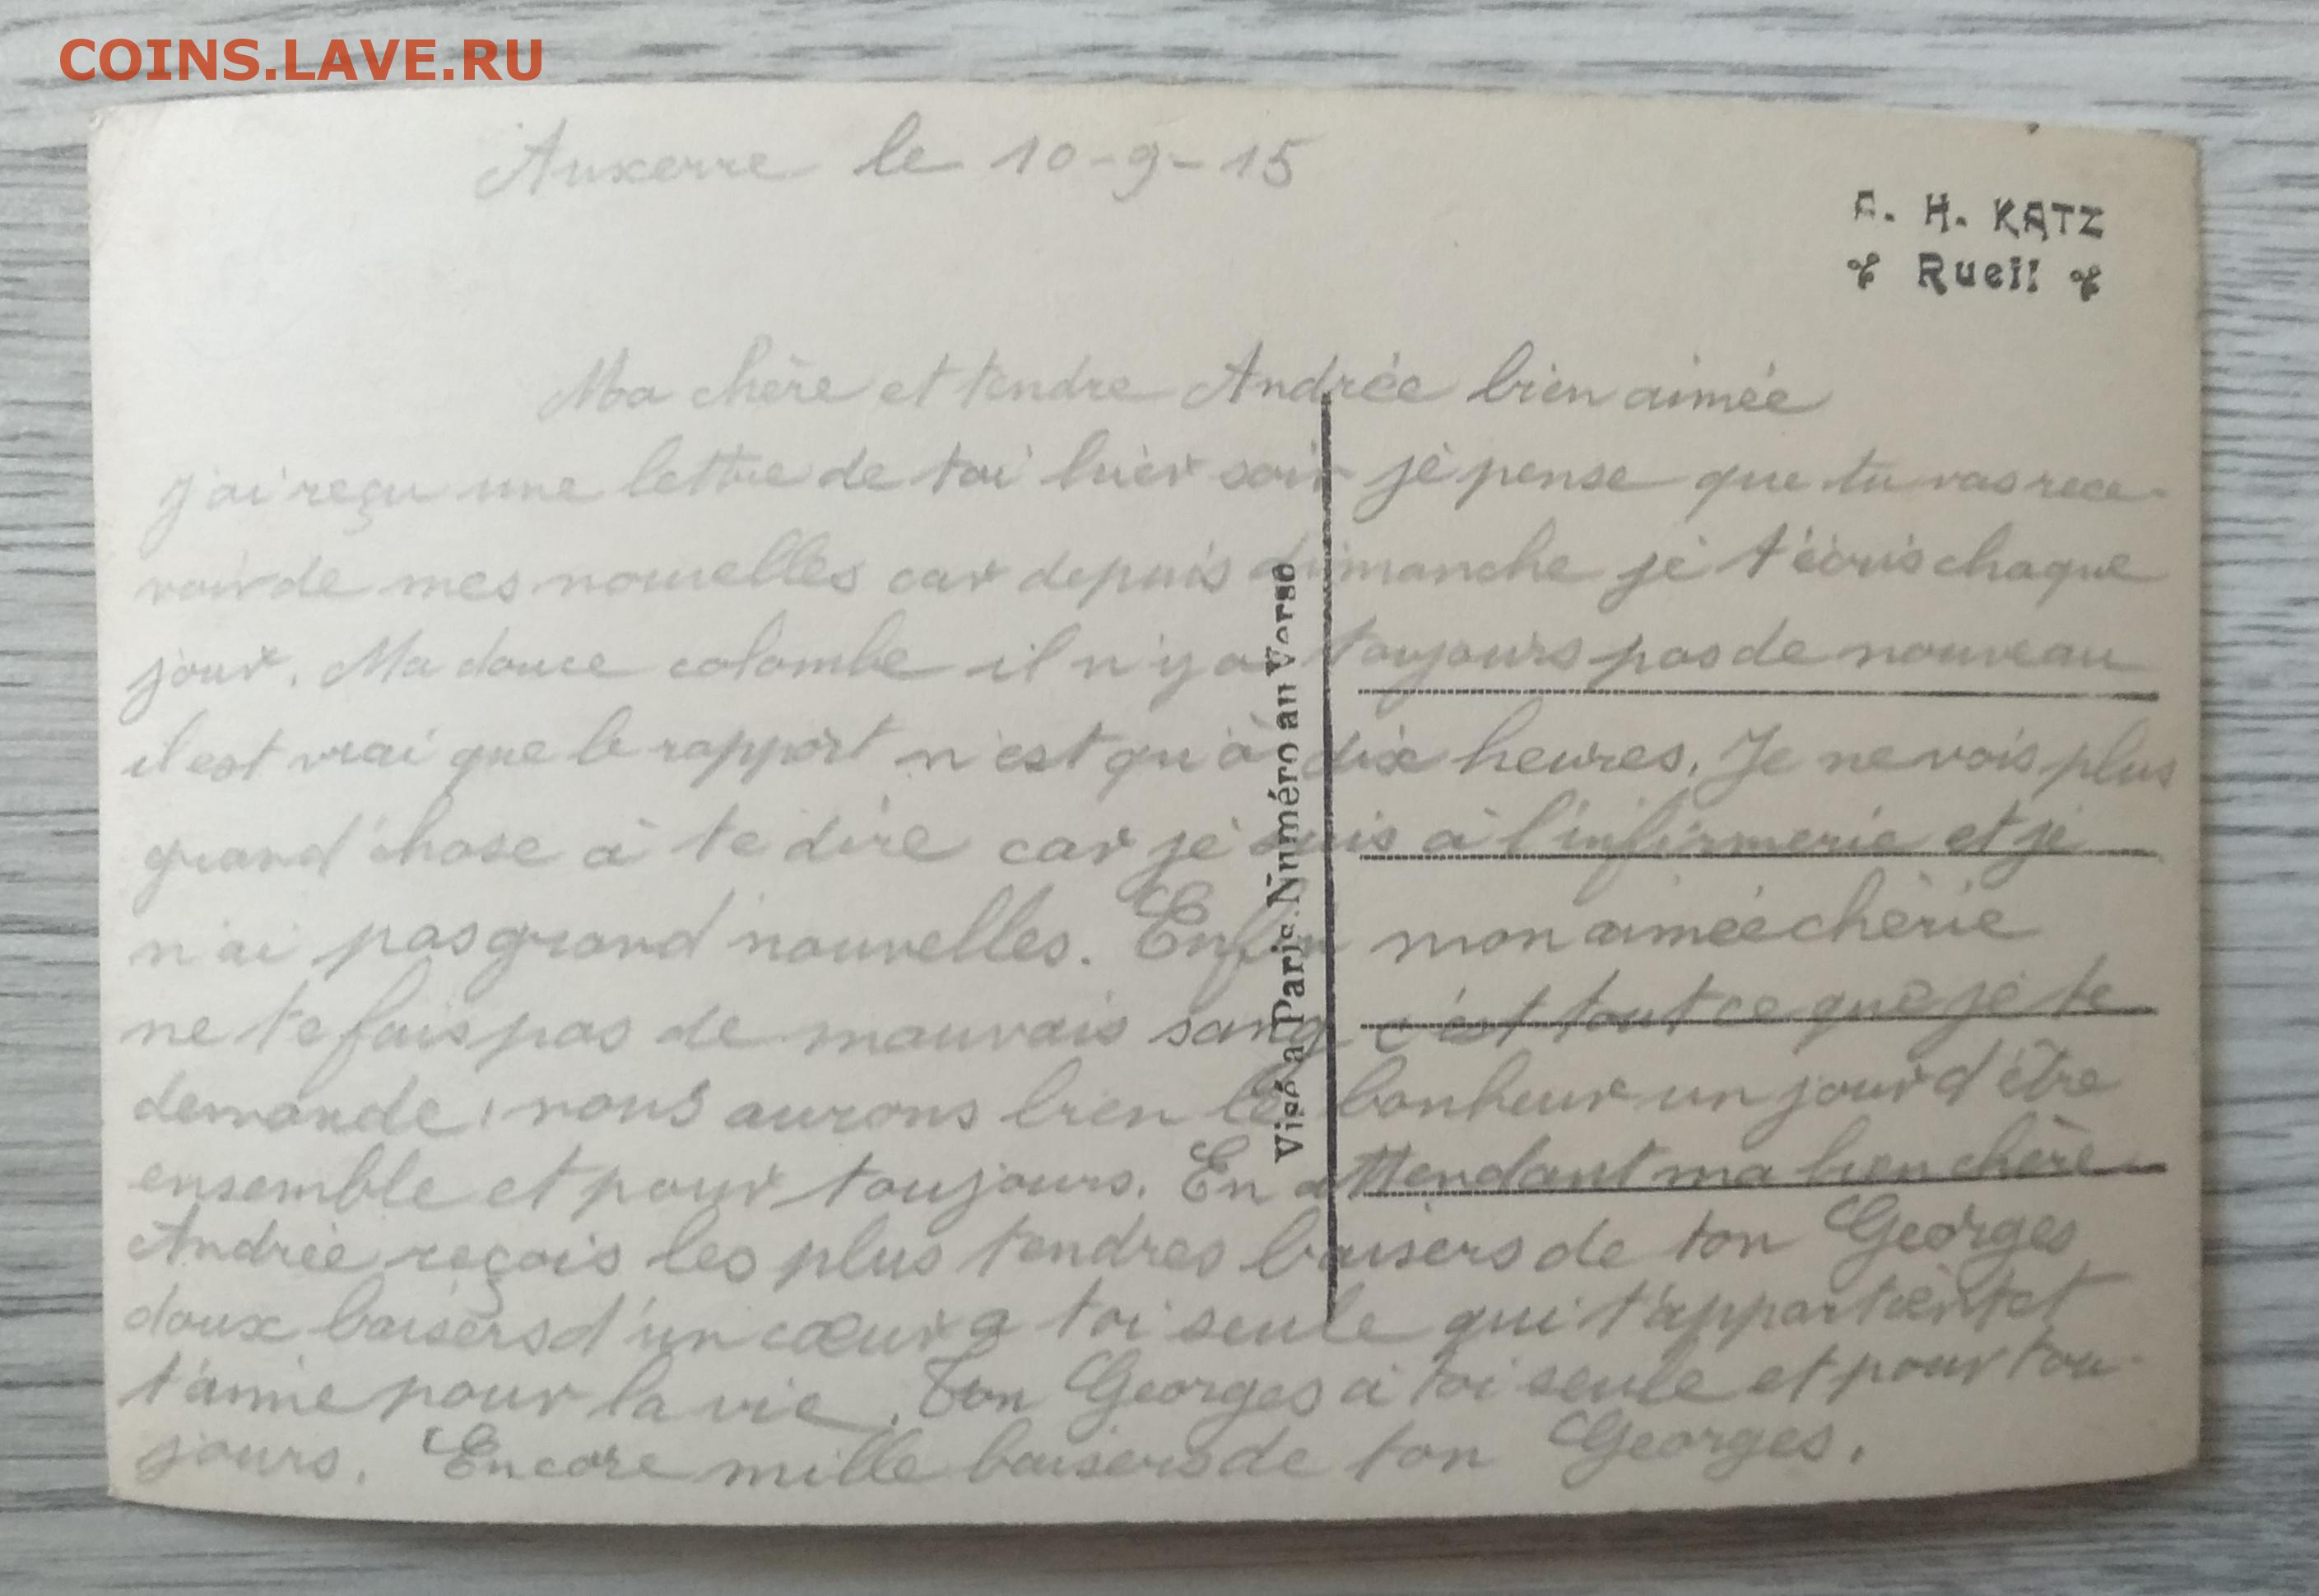 COINS.LAVE.RU
Auxerre le 10-9-15
A. H. KATZ
Rueil
Ma chère et tendre Andrée bien aimée
j'ai reçu une lettre de toi hier soir je pense que tu vas rece-
voir de mes nouvelles car depuis dimanche je t'écris chaque
jour. Ma douce colombe il n'y a toujours pas de nouveau
il est vrai que le rapport n'est qu'à dix heures. Je ne vois plus
grand'chose à te dire car je suis à l'infirmerie et je
n'ai pas grand nouvelles. Enfin mon aimée chérie
ne te fais pas de mauvais sang c'est tout ce que je te
demande, nous aurons bien le bonheur un jour d'être
ensemble et pour toujours. En attendant ma bien chère
Andrée reçois les plus tendres baisers de ton Georges
doux baisers d'un cœur a toi seule qui t'appartient et
t'aime pour la vie. Ton Georges à toi seule et pour tou-
jours. Encore mille baisers de ton Georges.
Visé à Paris. Numéro au Verso